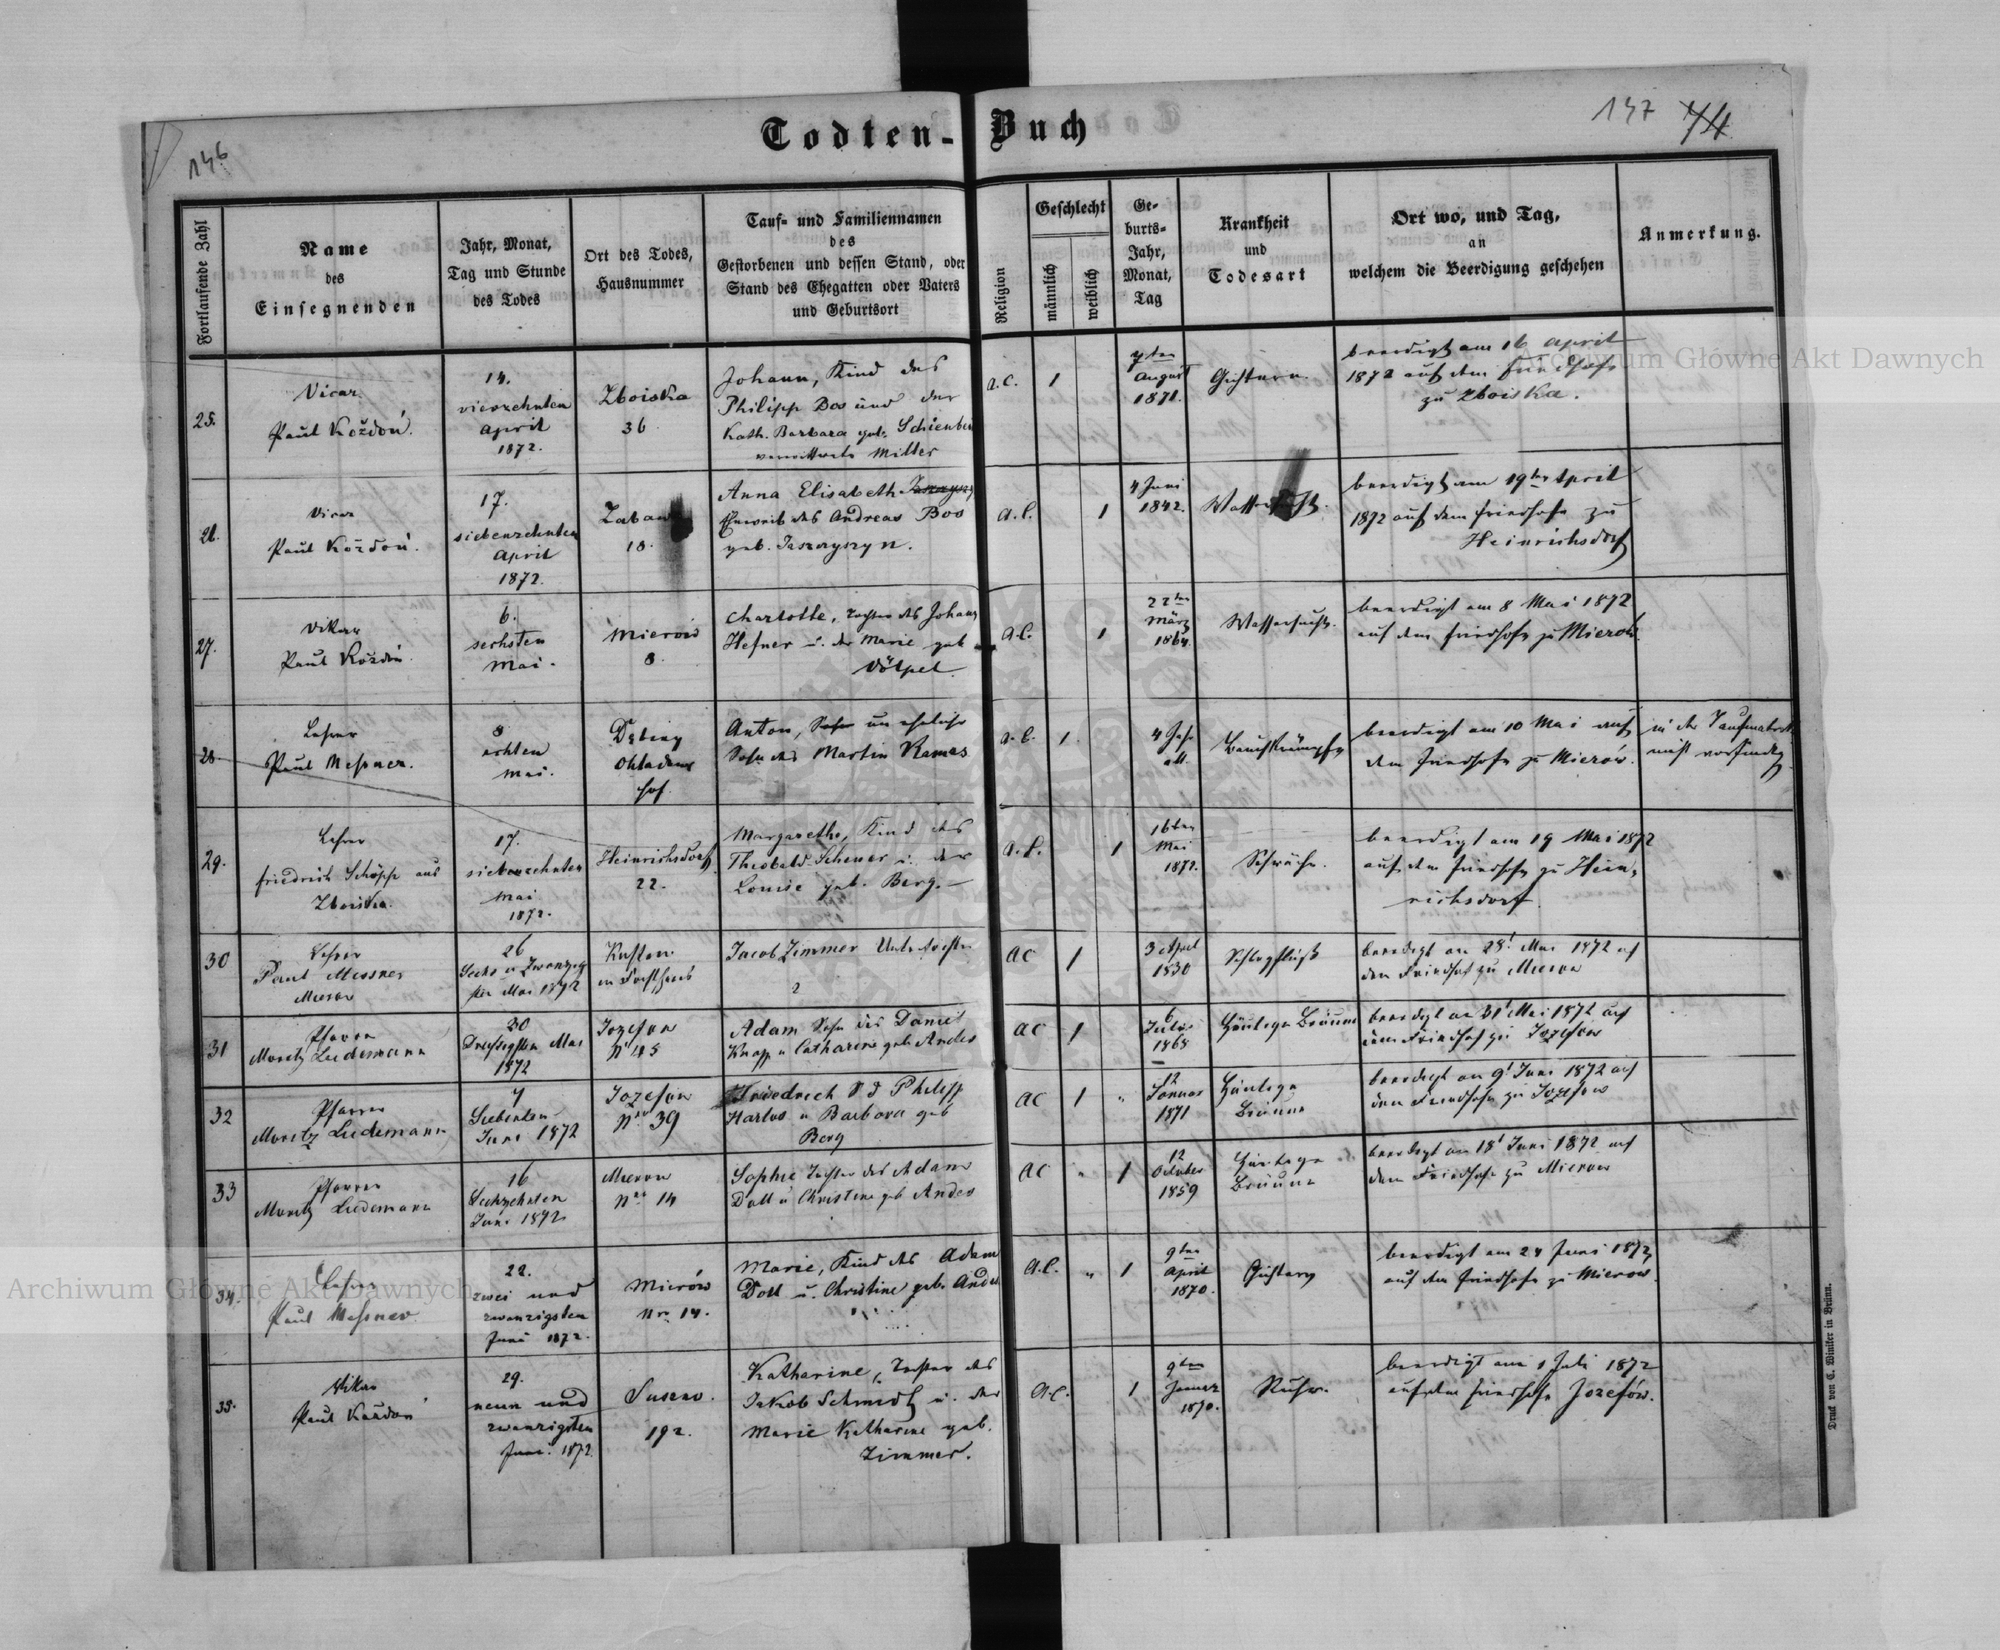 Todten-Buch
146
147
74
Fortlaufende Zahl
Name
des
Einsegnenden
Jahr, Monat,
Tag und Stunde
des Todes
Ort des Todes,
Hausnummer
Tauf- und Familiennamen
des
Gestorbenen und dessen Stand, oder
Stand des Ehegatten oder Vaters
und Geburtsort
Religion
Geschlecht
männlich
weiblich
Ge-
burts-
Jahr,
Monat,
Tag
Krankheit
und
Todesart
Ort wo, und Tag,
an
welchem die Beerdigung geschehen
Anmerkung.
25.
Vicar
Paul Koždoń.
14.
vierzehnten
April
1872.
Zboiska
36
Johann, Kind des
Philipp Bos und der
Kath. Barbara geb.
verwittwete Miller
a.c.
1
7ten
August
1871.
beerdigt am 16 April
1872 auf dem Friedhofe
zu Zboiska.
26.
Vicar
Paul Koždoń.
17.
siebenzehnten
April
1872.
18.
Anna Elisabeth
Eheweib des Andreas Bos
geb. Jaszczyszyn.
a.c.
1
4 Juni
1842.
Wassersucht.
beerdigt am 19ten April
1872 auf dem Friedhofe zu
Heinrichsdorf
27.
Vikar
Paul Koždoń
6.
sechsten
Mai.
Mierów
8.
Charlotte, Tochter des Johann
Hefner u. der Marie geb
Völpel
a.c.
1
22ten
März
1864.
Wassersucht.
beerdigt am 8 Mai 1872
auf dem Friedhofe zu Mierów.
28.
Lehrer
Paul Meßner.
8
achten
Mai.
hof.
Anton, Sohn unehelicher
Sohn des Martin Ramas
a.c.
1.
4 Jahr
alt.
beerdigt am 10 Mai auf
dem Friedhofe zu Mierów.
in der
nicht vorfindig
29.
Lehrer
Friedrich Schöpp aus
Zboiska.
17.
siebenzehnten
Mai
1872.
Heinrichsdorf
22.
Margarethe, Kind des
Theobald Scheuer u. der
Louise geb. Berg.
a.c.
1
16ten
Mai
1872.
Schwäche.
beerdigt am 19 Mai 1872
auf dem Friedhofe zu Hein-
richsdorf.
30
Lehrer
Paul Messner
Mierow
26
Sechs u Zwanzig
sten Mai 1872
im Forsthaus
Jacob Zimmer
AC
1
3 April
1830
Schlagfluß
beerdigt am 28t Mai 1872 auf
dem Friedhof zu Mierow
31
Pfarrer
Moritz Ludemann
30
Dreißigsten Mai
1872
Jozefow
No 45
Adam Sohn des Daniel
Knapp u Catharine geb Andes
AC
1
6
Julie
1868
Häutige Bräune
beerdigt am 31t Mai 1872 auf
dem Friedhof zu Jozefow
32
Pfarrer
Moritz Ludemann
7
Siebenten
Juni 1872
Jozefow
Nro 39
Friedrich S d Philipp
Harlos u Barbara geb
Berg
AC
1
"
12
Januar
1871
Häutige
Bräune
beerdigt am 9t Juni 1872 auf
dem Friedhofe zu Jozefow
33
Pfarrer
Moritz Ludemann
16
Sechzehnten
Juni 1872
Mierow
Nro 14
Sophie Tochter des Adam
Doll u Christine geb Andes
AC
"
1
12
October
1859
Häutige
Bräune
beerdigt am 18t Juni 1872 auf
dem Friedhofe zu Mierow
34.
Lehrer
Paul Meßner
22.
zwei und
zwanzigsten
Juni 1872.
Mierów
Nro 14.
Marie, Kind des Adam
Doll u. Christine geb. Andes
a.c.
"
1
9ten
April
1870.
beerdigt am 24 Juni 1872
auf dem Friedhofe zu Mierow.
35.
Vikar
Paul Koždoń
29.
neun und
zwanzigsten
Juni. 1872.
192.
Katharine, Tochter des
Jakob Schmidt u. der
Marie Katharine geb.
Zimmer.
a.c.
1
9ten
Januar
1870.
Ruhr.
beerdigt am 1 Juli 1872
auf dem Friedhofe Jozefów.
Druck von C. Winiker in Brünn.
Archiwum Główne Akt Dawnych
Archiwum Główne Akt Dawnych